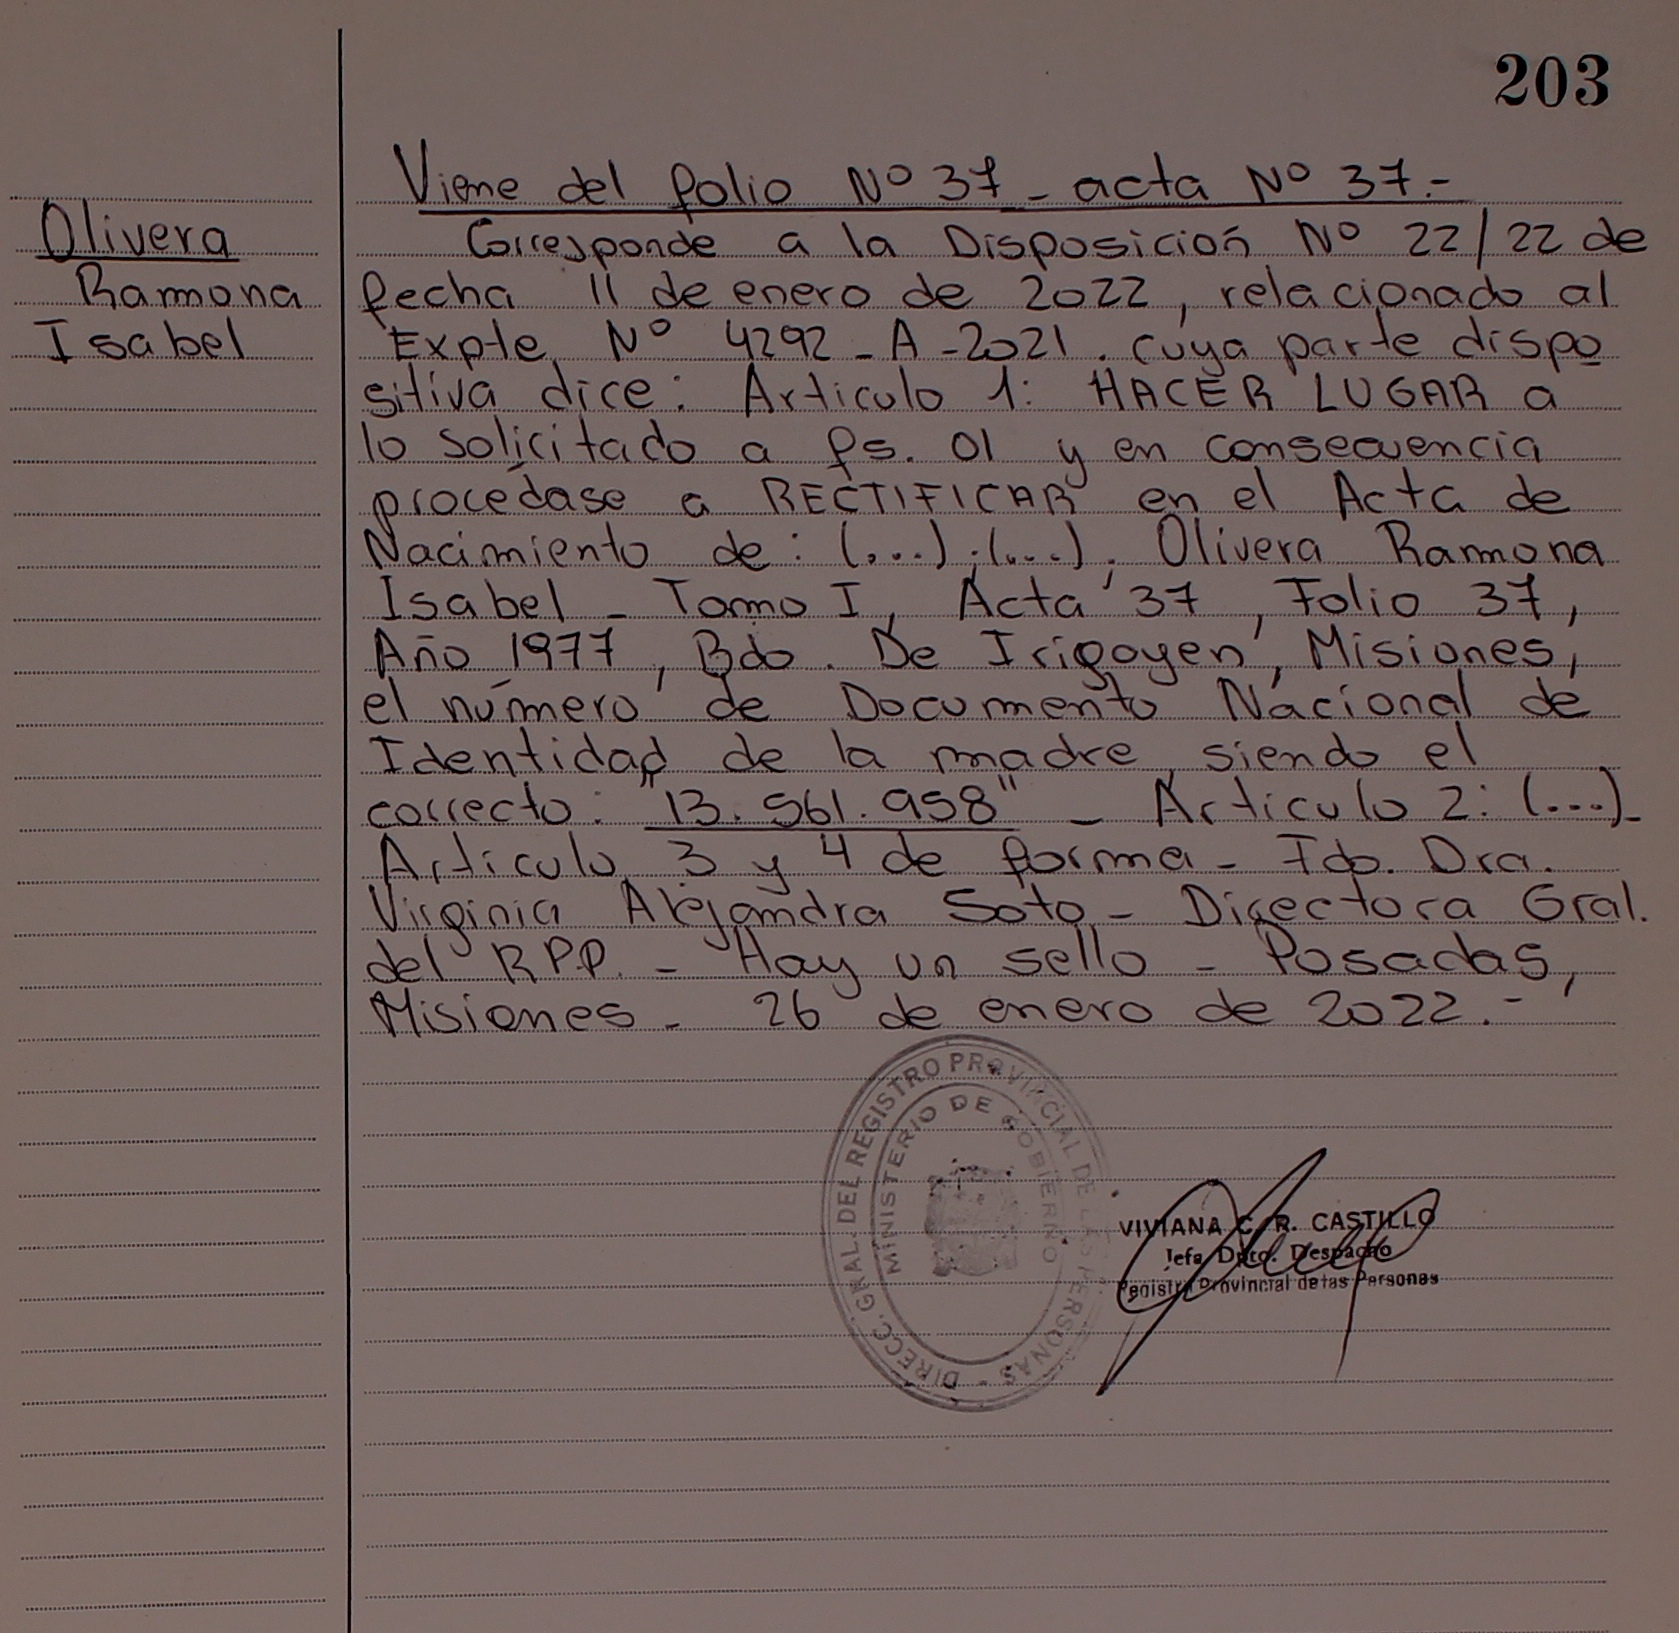 203
Olivera
Ramona
Isabel
Viene del folio Nº 37 - acta Nº 37.-
Corresponde a la Disposición Nº 22/22 de
fecha 11 de enero de 2022, relacionado al
Expte. Nº 4292 - A - 2021. cuya parte dispo
sitiva dice: Articulo 1: HACER LUGAR a
lo solicitado a fs. 01 y en consecuencia
procédase a RECTIFICAR en el Acta de
Nacimiento de: (...).(...). Olivera Ramona
Isabel - Tomo I, Acta 37, Folio 37,
Año 1977, Bdo. De Irigoyen, Misiones,
el número de Documento Nacional de
Identidad de la madre, siendo el
correcto: "13.561.958" - Articulo 2: (...)-
Articulo 3 y 4 de forma - Fdo. Dra.
Virginia Alejandra Soto - Directora Gral.
del R.P.P. - Hay un sello - Posadas,
Misiones - 26 de enero de 2022.-
DIRECC. GRAL. DEL REGISTRO PROVINCIAL DE LAS PERSONAS -
MINISTERIO DE GOBIERNO
VIVIANA C. R. CASTILLO
Jefa Dpto. Despacho
Registro Provincial de las Personas